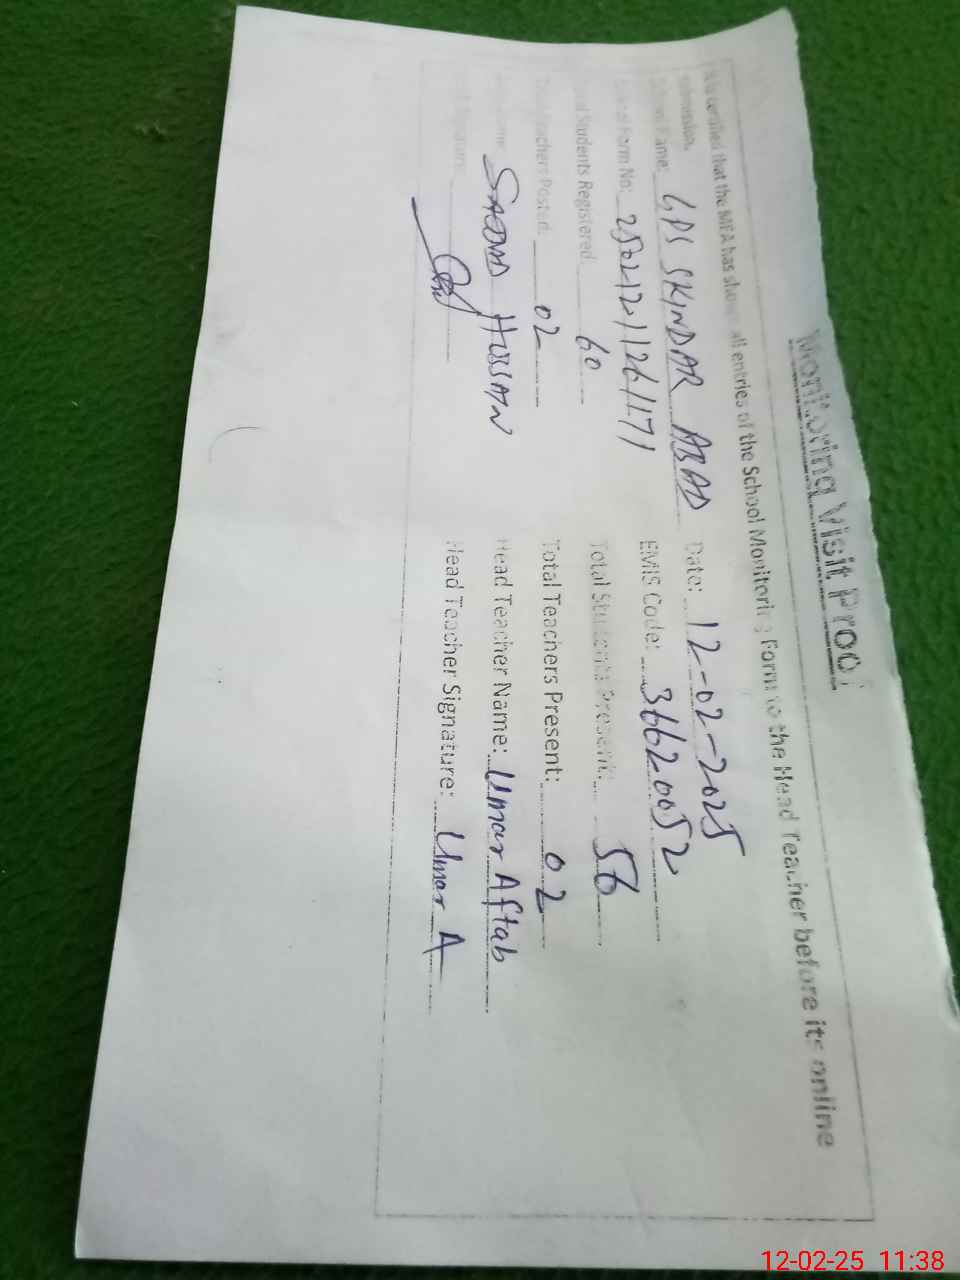 Monitoring Visit Proof
It is certified that the MEA has shown all entries of the School Monitoring Form to the Head Teacher before its online
submission.
School Name: GPS SKINDAR ABAD Date: 12-02-2025
School Form No: 250212112617171 EMIS Code: 36620052
Total Students Registered 60 Total Students Present: 56
Total Teachers Posted: 02 Total Teachers Present: 02
Name: HUSSAIN Head Teacher Name: Umar Aftab
Head Teacher Signature: Umar A
12-02-25 11:38